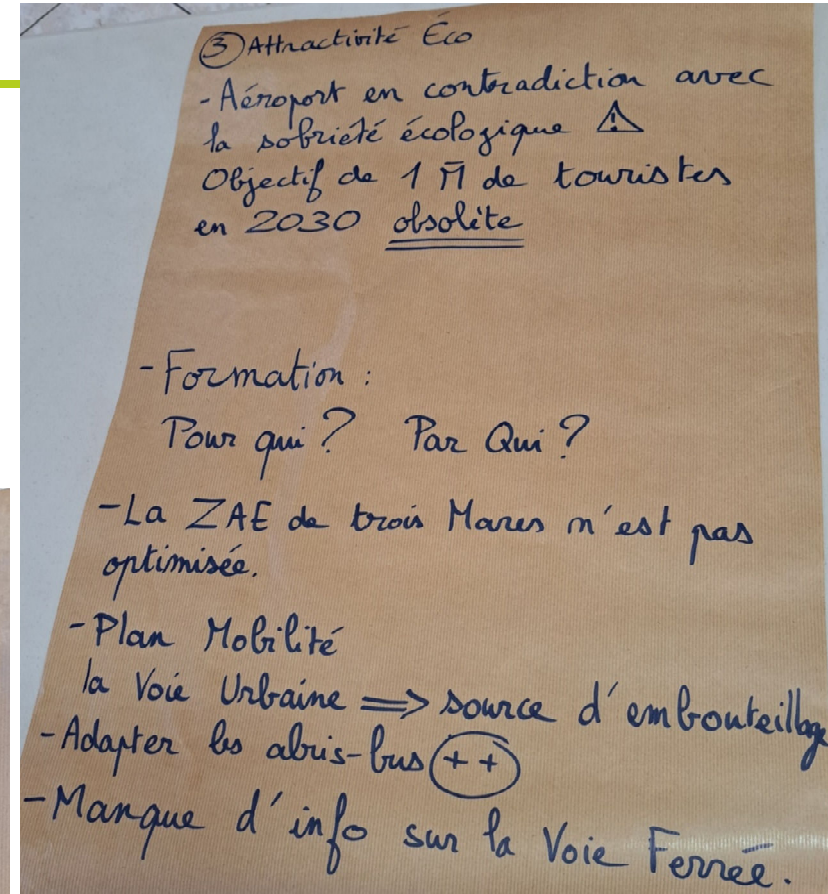 ③ Attractivité Éco
- Aéroport en contradiction avec
la sobriété écologique ⚠
Objectif de 1 M̄ de touristes
en 2030 obsolète
- Formation :
Pour qui ? Par Qui ?
- La ZAE de trois Mares n'est pas
optimisée.
- Plan Mobilité
la Voie Urbaine => source d'embouteillage
- Adapter les abris-bus (++)
- Manque d'info sur la Voie Ferrée.